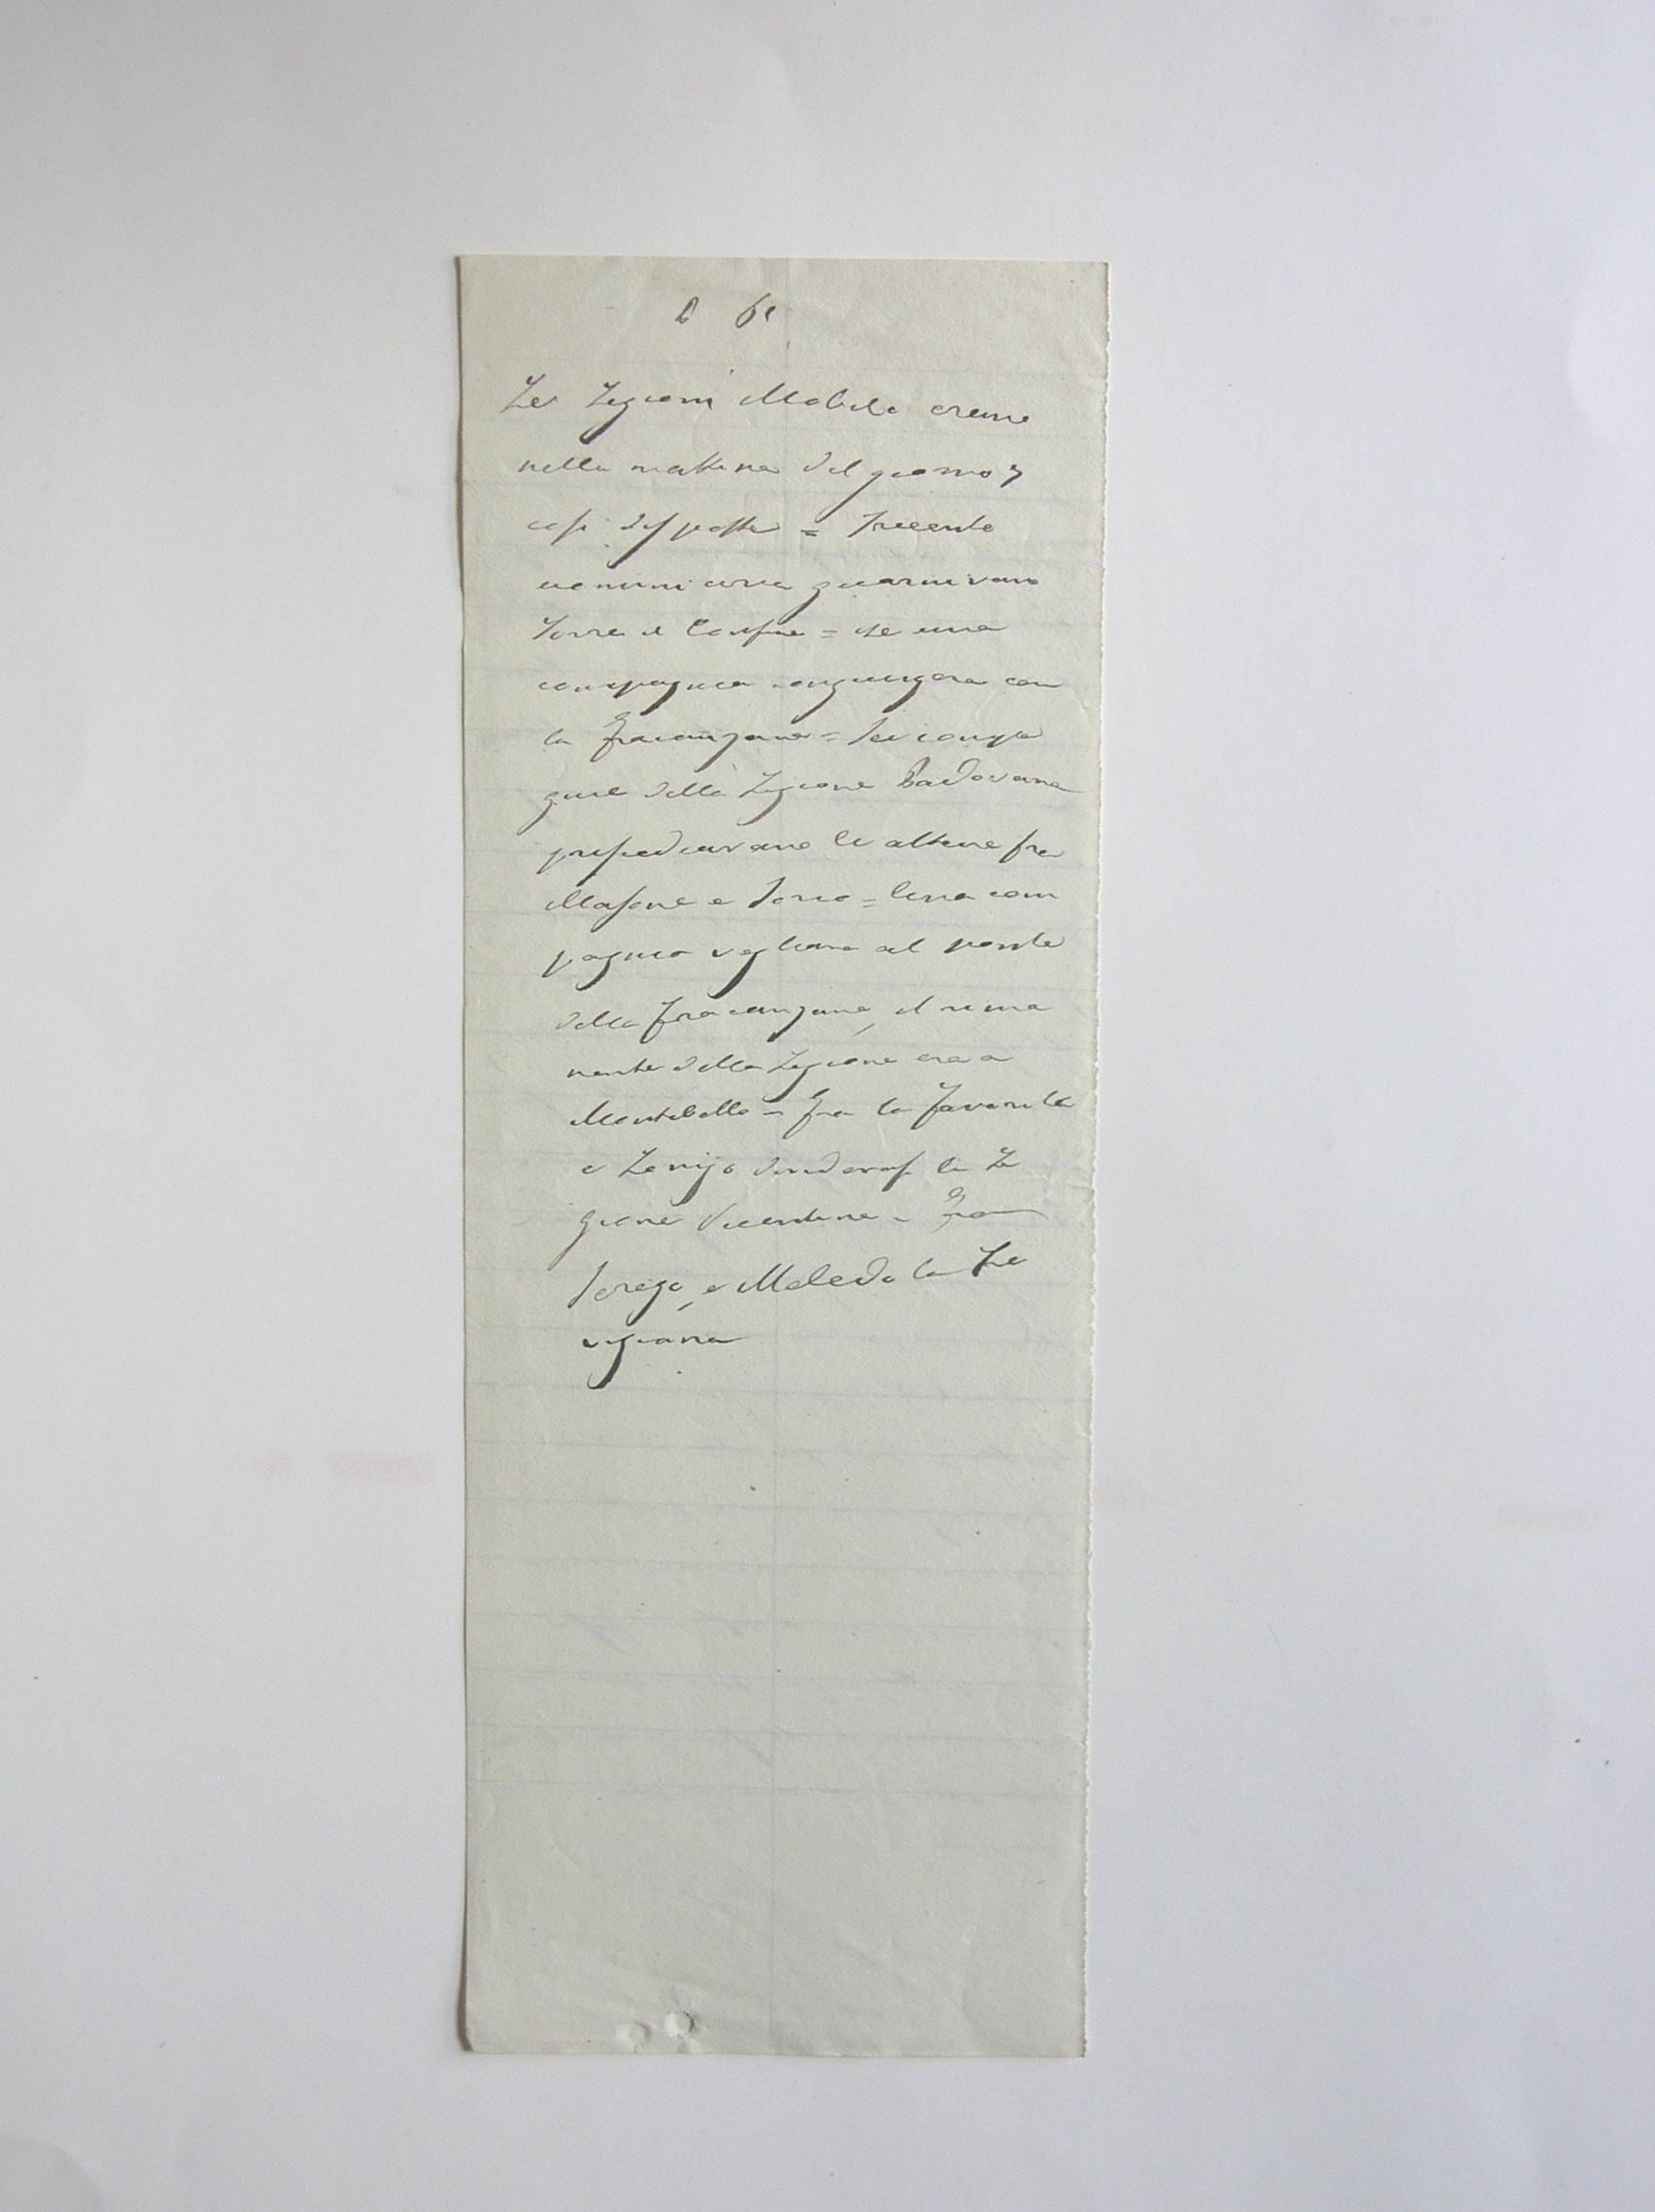 Le Legioni Mobili erano
nella mattina del giorno 7
così disposte = Trecento
uomini circa guarnivano
Torre di Confine = ed una
compagnia congiungeva con
la Fracanzana = Sei compa
gnie della Legione Padovana
presidiavano le alture fra
Masone e Sorio = Una com
pagnia vegliava al ponte
della Fracanzana, il rima
nente della Legione era a
Montebello = fra la Favorita
e Lonigo stendevasi la Le
gione Vicentina = Fra
Sarego, e Meledo la Tre
vigiana